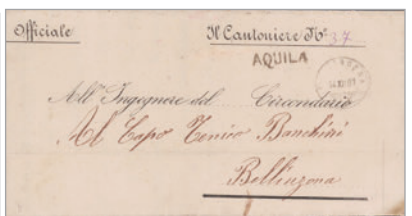 Officiale
Il Cantoniere No. 37
AQUILA
All' Ingegnere del Circondario
Al Capo Tenico Banchini
Bellinzona